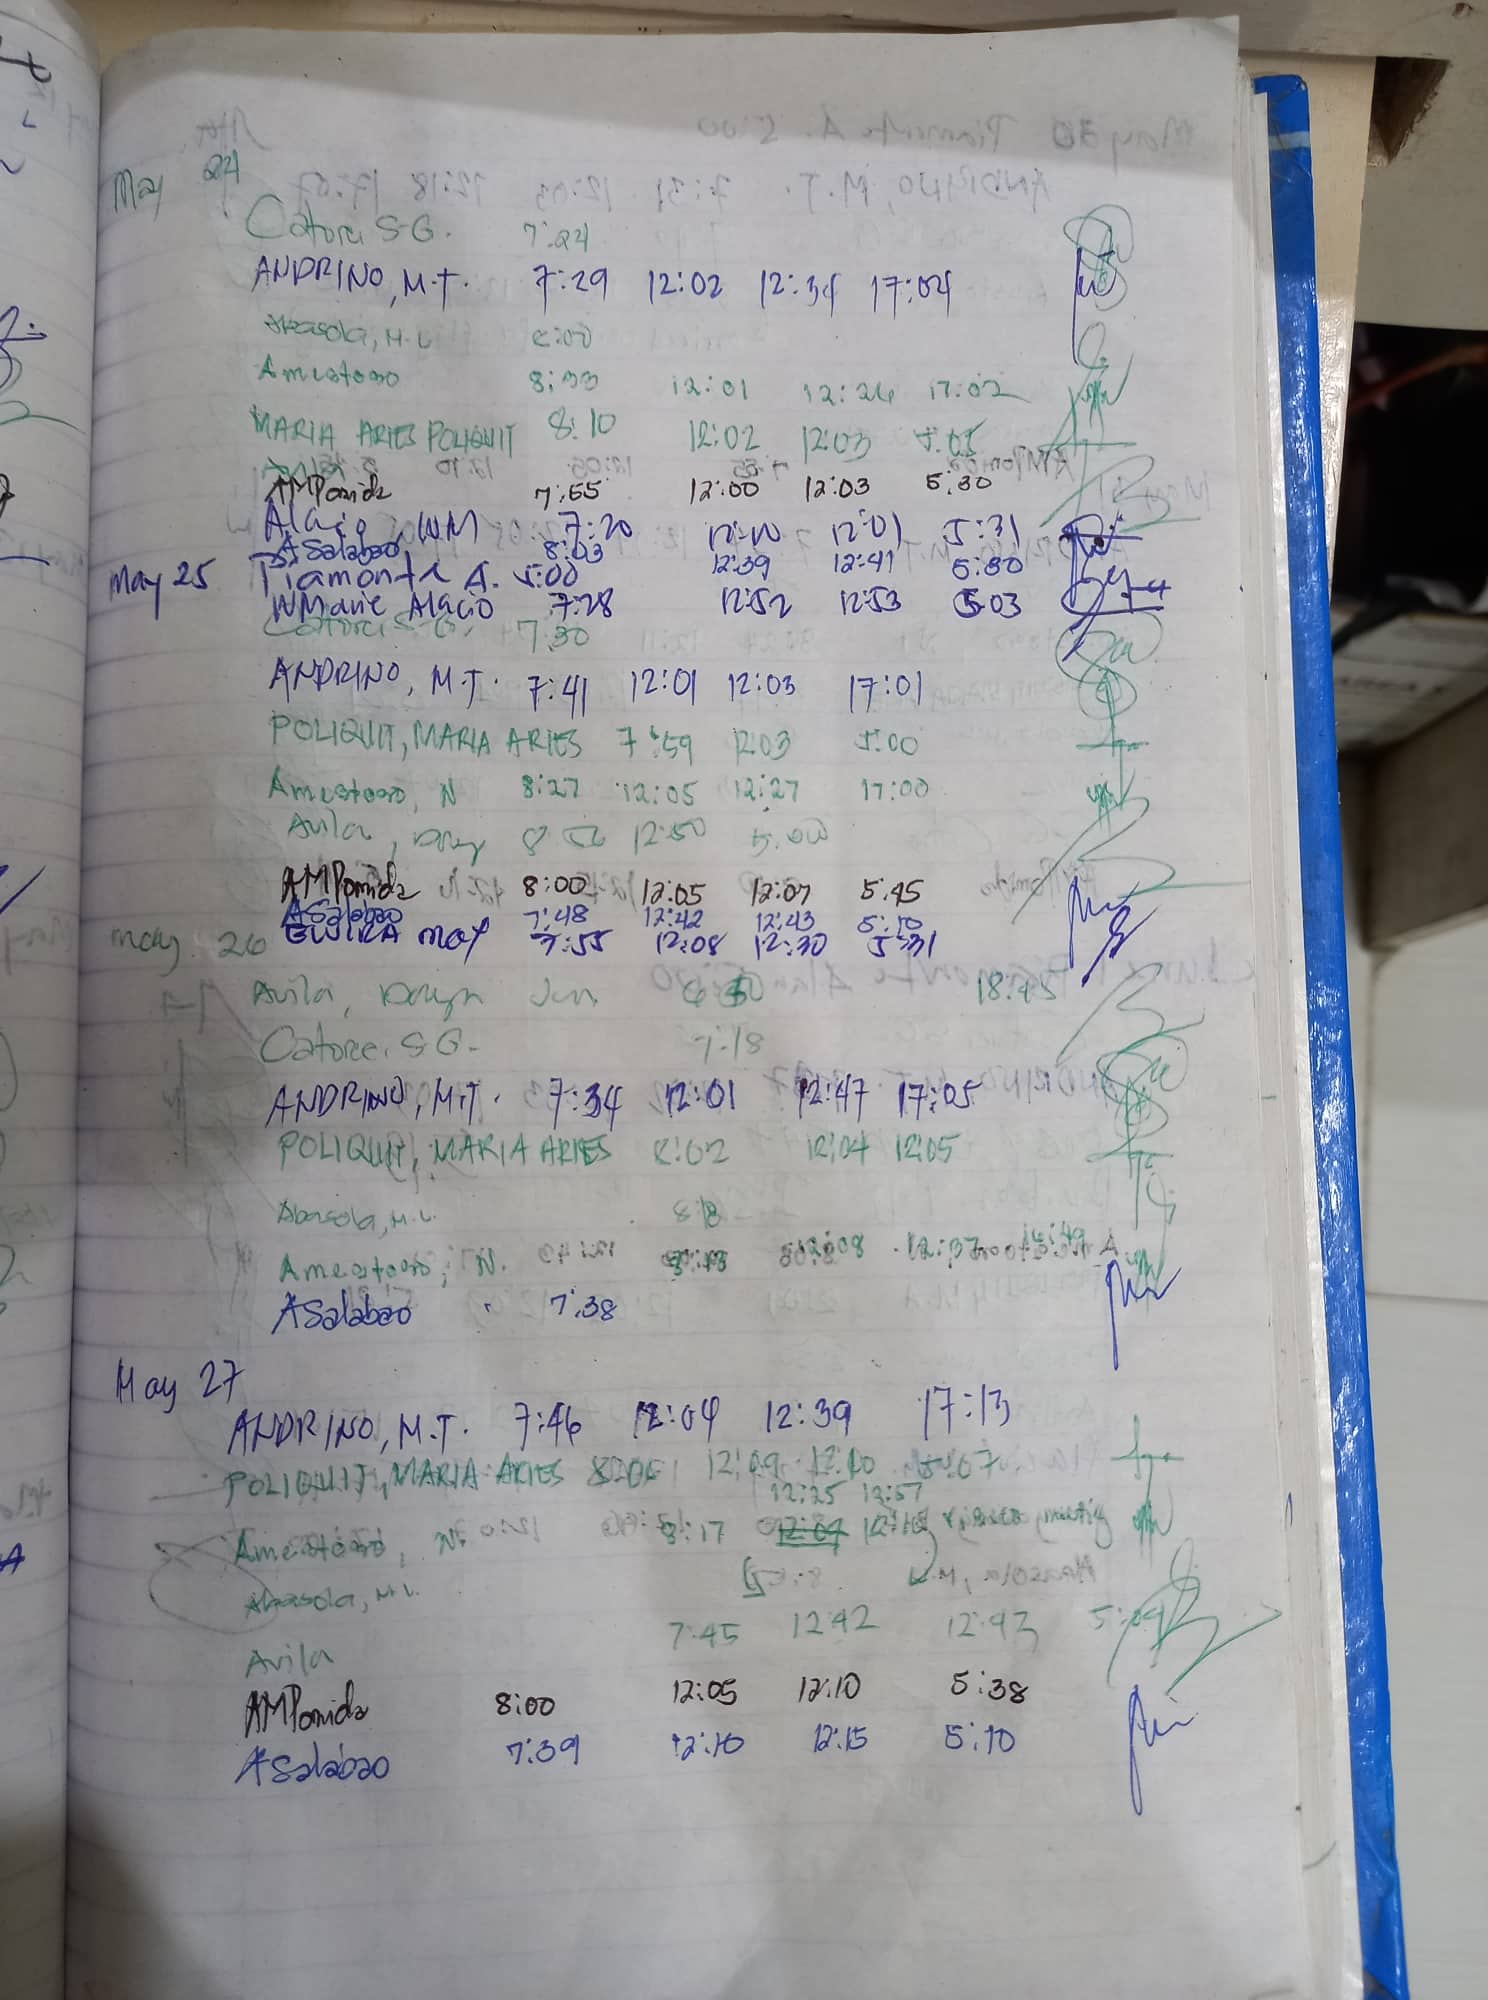 May 24
Catore S.G. 7:24
ANDRINO, M.T. 7:29 12:02 12:34 17:04
Abasola, M.L 8:00
Amestoso 8:33 12:01 12:26 17:02
MARIA ARIES POLIQUIT 8:10 12:02 12:03 5:05
AMPomida 7:55 12:00 12:03 5:30
Alacio, WM 7:20 12:00 12:01 5:31
ASalabao, 8:03 12:39 12:41 5:30
May 25 Piamonte A. 5:00
WMarie Alacio 7:28 12:52 12:53 5:03
Catore S.G. 7:30
ANDRINO, M.T. 7:41 12:01 12:03 17:01
POLIQUIT, MARIA ARIES 7:59 12:03 5:00
Amestoso, N 8:27 12:05 12:27 17:00
Avila, 12:50
AMPomida 8:00 12:05 12:07 5:45
ASalabao 7:48 12:42 12:43 5:10
May 26 May 7:55 12:08 12:30 5:31
Avila, 18:45
Catore, S.G. 7:18
ANDRINO, M.T. 7:34 12:01 12:47 17:05
POLIQUIT, MARIA ARIES 8:02 12:04 12:05
Abasola, M.L. 8:18
Amestoso, N. 12:08 12:37
ASalabao 7:38
May 27
ANDRINO, M.T. 7:46 12:04 12:39 17:13
POLIQUIT, MARIA ARIES 12:09 12:10 5:07
12:25 12:57
Amestoso, N. 8:17 12:07
Abasola, M.L.
Avila 7:45 12:42 12:43 5:04
AMPomida 8:00 12:05 12:10 5:38
ASalabao 7:39 12:10 12:15 5:10